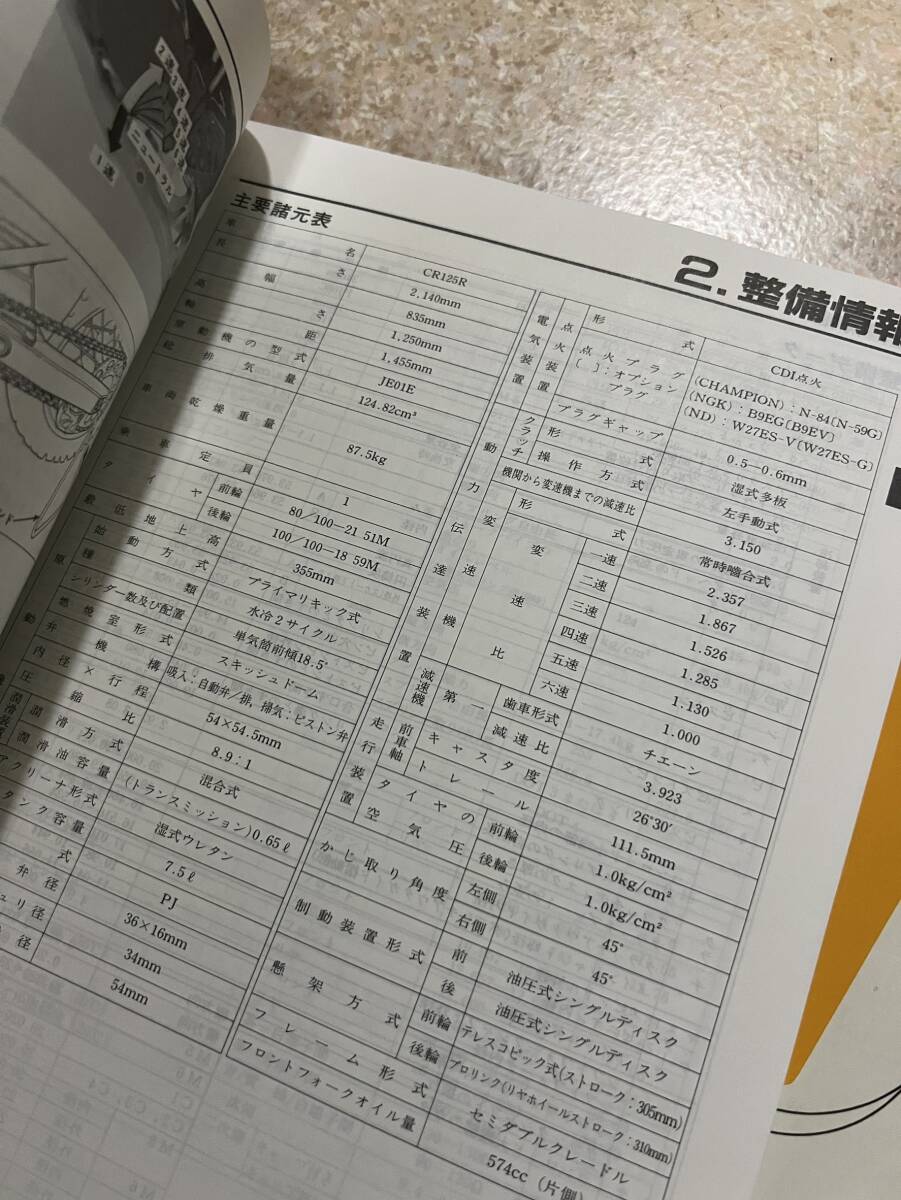 2速
ニュートラル
1速
2. 整備情報
主要諸元表
車名 CR125R
長さ 2,140mm
幅 835mm
高さ 1,250mm
軸距 1,455mm
原動機の型式 JE01E
総排気量 124.82cm³
車両乾燥重量 87.5kg
乗車定員 1
タイヤ 前輪 80/100-21 51M
後輪 100/100-18 59M
最低地上高 355mm
始動方式 プライマリキック式
種類 水冷2サイクル
シリンダー数及び配置 単気筒前傾18.5°
燃焼室形式 スキッシュドーム
弁機構 吸入:自動弁/排,掃気:ピストン弁
内径×行程 54×54.5mm
圧縮比 8.9:1
潤滑方式 混合式
潤滑油容量 (トランスミッション)0.65ℓ
アクリーナ形式 湿式ウレタン
タンク容量 7.5ℓ
式 PJ
弁径 36×16mm
ュリ径 34mm
径 54mm
電気装置 点火装置 形式 CDI点火
点火プラグ
〔 〕:オプションプラグ
(CHAMPION):N-84〔N-59G〕
(NGK):B9EG〔B9EV〕
(ND):W27ES-V〔W27ES-G〕
プラグギャップ 0.5-0.6mm
動力伝達装置 クラッチ 形式 湿式多板
操作方式 左手動式
機関から変速機までの減速比 3.150
変速機 形式 常時噛合式
変速比 一速 2.357
二速 1.867
三速 1.526
四速 1.285
五速 1.130
六速 1.000
減速機 第一 歯車形式 チエーン
減速比 3.923
走行装置 前車軸 キャスタ度 26°30′
トレール 111.5mm
タイヤの空気圧 前輪 1.0kg/cm²
後輪 1.0kg/cm²
かじ取り角度 左側 45°
右側 45°
制動装置形式 前 油圧式シングルディスク
後 油圧式シングルディスク
懸架方式 前輪 テレスコピック式(ストローク:305mm)
後輪 プロリンク(リヤホイールストローク:310mm)
フレーム形式 セミダブルクレードル
フロントフォークオイル量 574cc(片側)